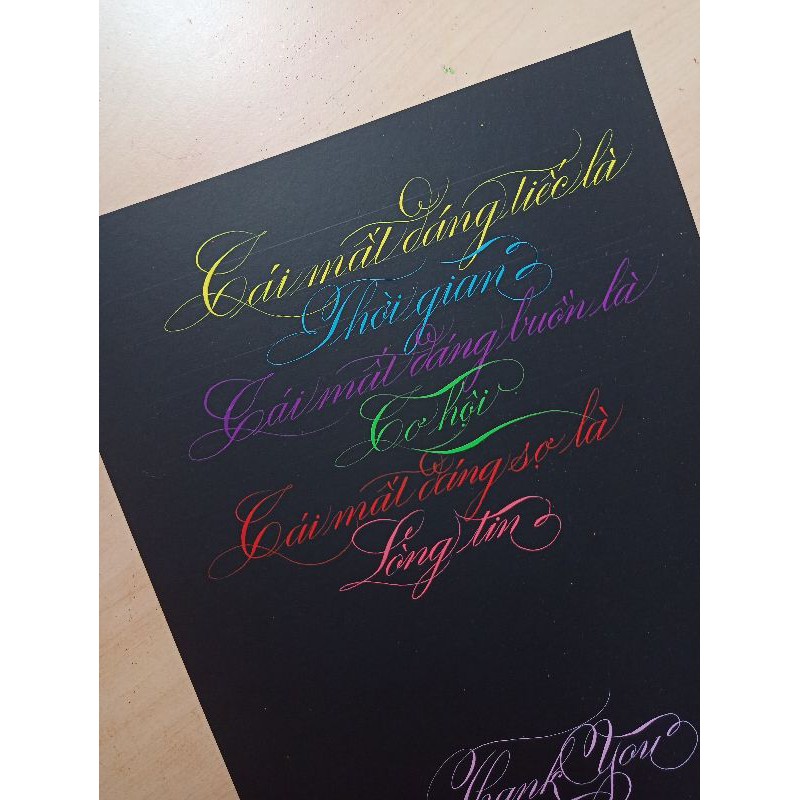 Cái mất đáng tiếc là
Thời gian
Cái mất đáng buồn là
Cơ hội
Cái mất đáng sợ là
Lòng tin
Thank You